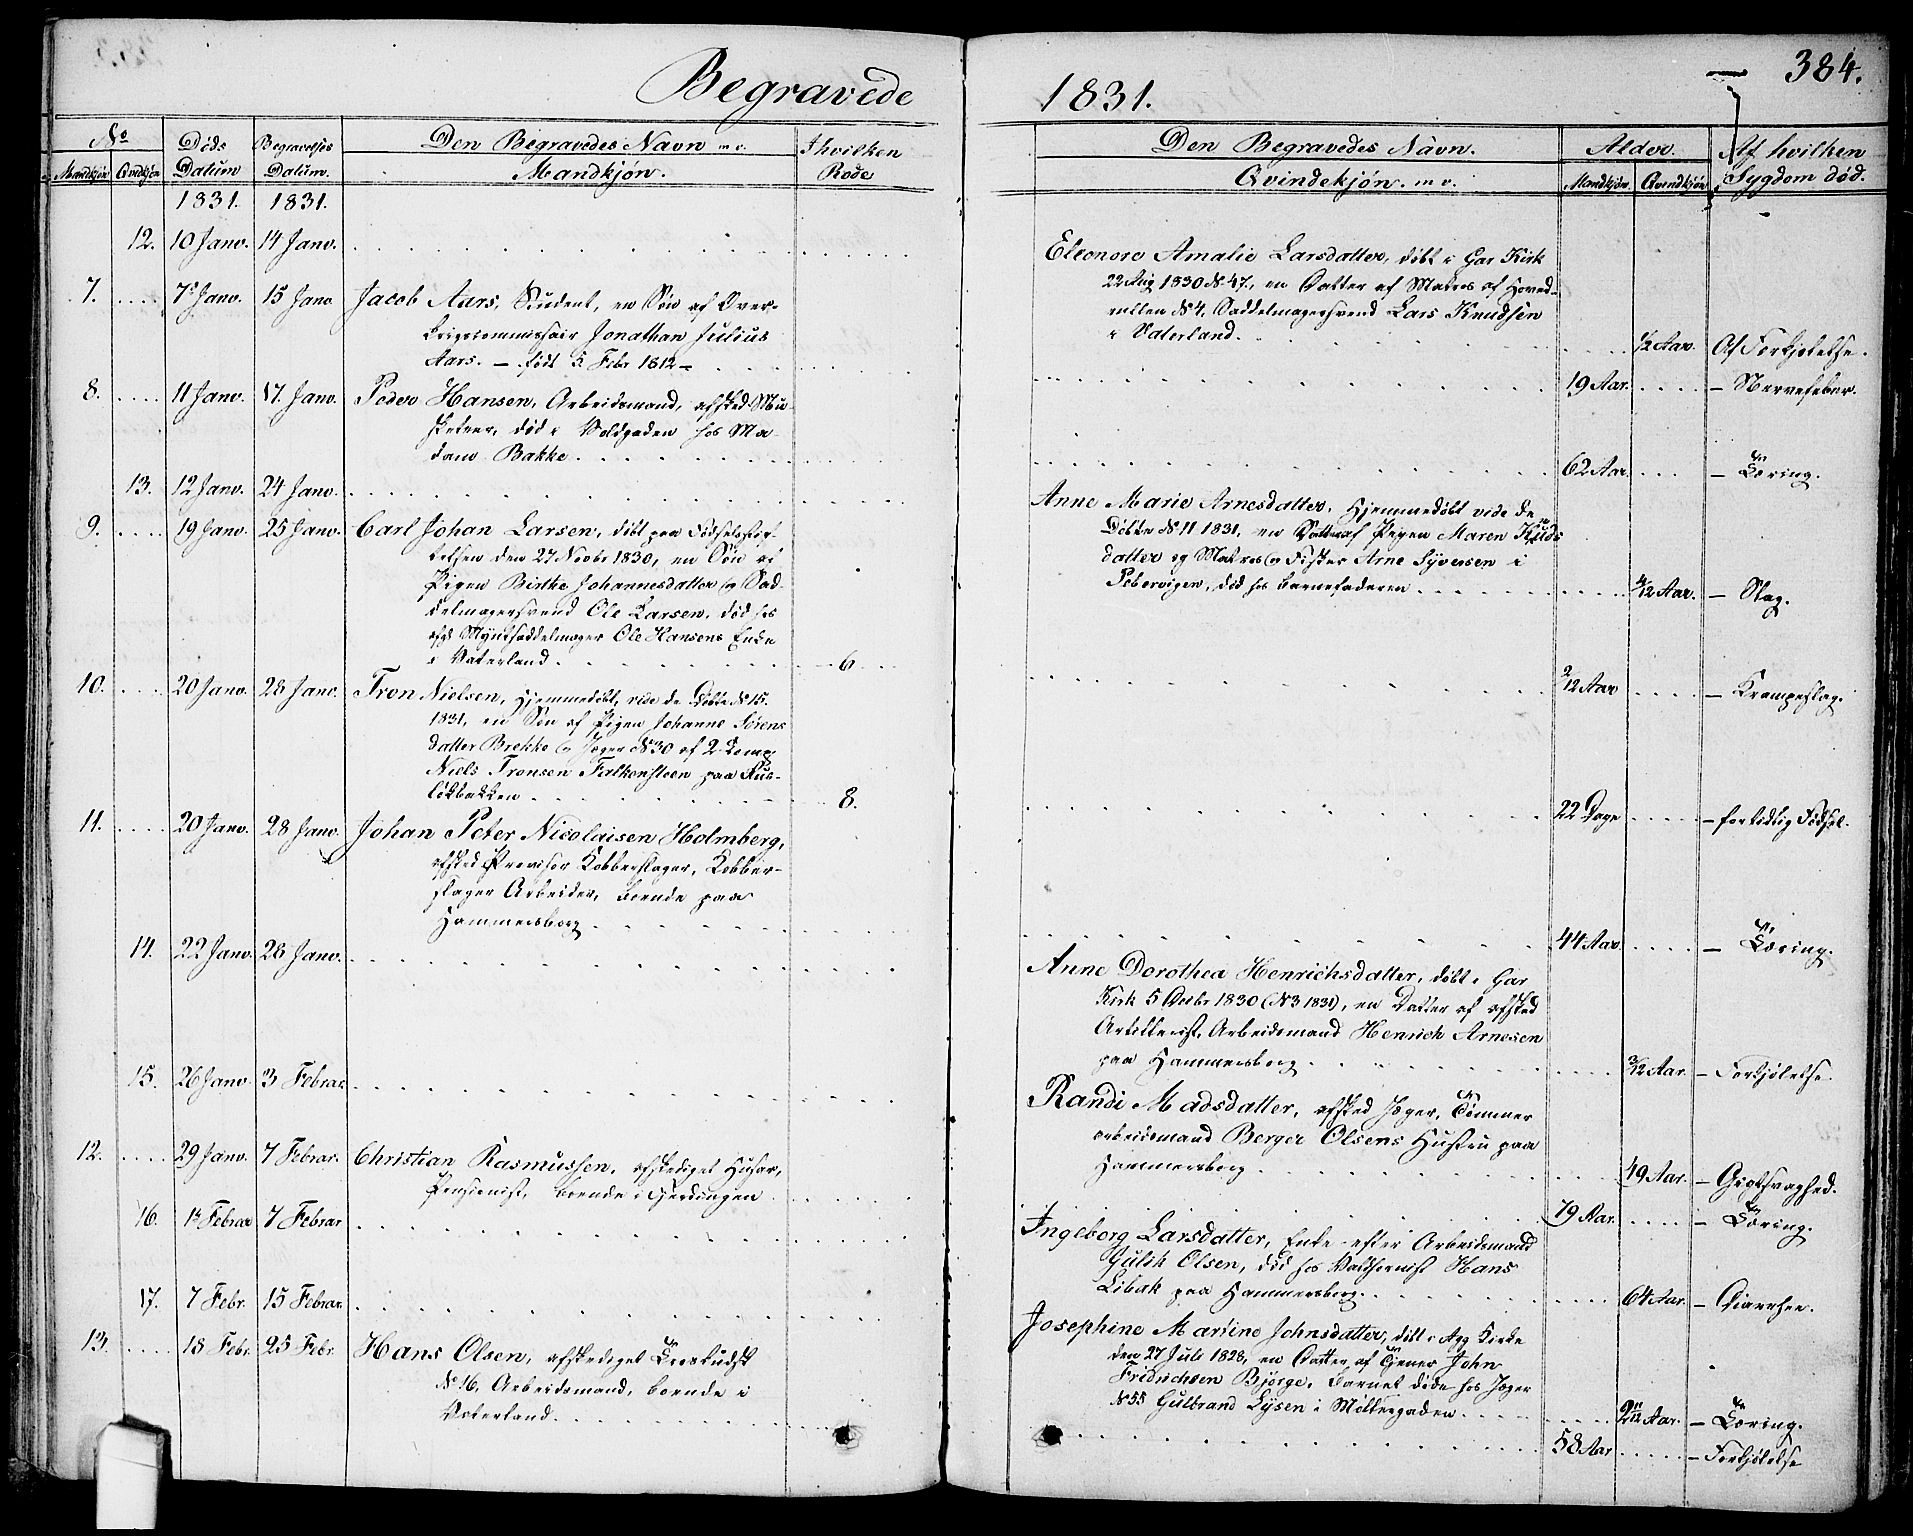 Begravede
1831.
384.
No
Døds
Begravelses
Den Begravedes Navn m v.
I hvilken
Mandkjøn
Qvindkjøn
Datum
Datum.
Mandkjøn.
Rode
Den Begravedes Navn.
Alder.
Af hvilken
Qvindekjøn. m v.
Mandkjøn.
Qvindkjøn
Sygdom død.
1831. 1831.
12. 10 Janv. 14 Janv.
7. 7de Janv. 15 Janv Jacob Aars, Student, en Søn af Over-
krigscommissair Jonathan Julius
Aars. – født 5 Febr 1812 –
8. 11 Janv. 17 Janv. Peder Hansen, Arbeidsmand, afsked Mu-
sketeer, død i Voldgaden hos Ma-
dam Bakke.
13. 12 Janv. 24 Janv.
9. 19 Janv. 25 Janv. Carl Johan Larsen, døbt paa Fødselsstif-
telsen den 27 Novbr 1830, en Søn af
Pigen Birthe Johannesdatter og Sad-
delmagersvend Ole Larsen, død hos
afgl Myntsaddelmager Ole Hansens Enke
i Vaterland 6
10. 20 Janv. 28 Janv. Tron Nielsen, Hjemmedøbt, vide de Døbte No 15.
1831, en Søn af Pigen Johanne Sørens
datter Brekke og Jæger No 30 af 2 Comp
Niels Tronsen Falkensteen paa Rus-
løkbakken 8.
11. 20 Janv. 28 Janv. Johan Peter Nicolaisen Holmberg,
afsked Provisor Kobberslager, Kobber-
slager Arbeider, boende paa
Hammersborg
14. 22 Janv. 28 Janv.
15. 26 Janv. 3 Febrar.
12. 29 Janv. 7 Febrar. Christian Rasmussen, afskediget Husar,
Pensionist, boende i Gjerdingen
16. 1ste Febrar 7 Febrar
17. 7 Febr. 15 Febrar.
13. 18 Febr. 25 Febr. Hans Olsen, afskediget Troskudsk
No 16, Arbeidsmand, boende i
Vaterland
Eleonore Amalie Larsdatter, døbt i Gar Kirk
22 Aug 1830 No 47, en Datter af Matros af Hoved-
rullen No 4, Saddelmagersvend Lars Knudsen
i Vaterland. 1/2 Aar. Af Forkjølelse.
19 Aar. – Nervefeber.
62 Aar. – Tæring.
Anne Marie Arnesdatter, Hjemmedøbt vide de
Døbte No 11 1831, en Datter af Pigen Maren Knuds
datter og Matros og Fisker Arne Syversen i
Pebervigen, død hos Barnefaderen 4/12 Aar. – Slag.
2/12 Aar – Krampeslag.
22 Dage – fortidlig Fødsel.
44 Aar. – Tæring.
Anne Dorothea Henrichsdatter, døbt i Gar
Kirk 5 Decbr 1830 (No 3 1831), en Datter af afsked
Artillerist, Arbeidsmand Henrich Arnesen
paa Hammersborg 3/12 Aar. – Forkjølelse.
Randi Madsdatter, afsked Jæger, Tømmer
arbeidsmand Berger Olsens Hustru paa
Hammersborg 49 Aar. – Gigtsvaghed.
79 Aar. – Tæring.
Ingeborg Larsdatter, Enke efter Arbeidsmand
Gulik Olsen, død hos Valthornist Hans
Libak paa Hammersborg. 64 Aar. – Diarrhee.
Josephine Mariine Johnsdatter, døbt i Agg Kirke
den 27 Juli 1828, en Datter af Tjener John
Fridrichsen Bjørge, Barnet døde hos Jæger
No 55 Gulbrand Lysen i Møllergaden 2 11/12 Aar. – Tæring.
58 Aar – Forkjølelse